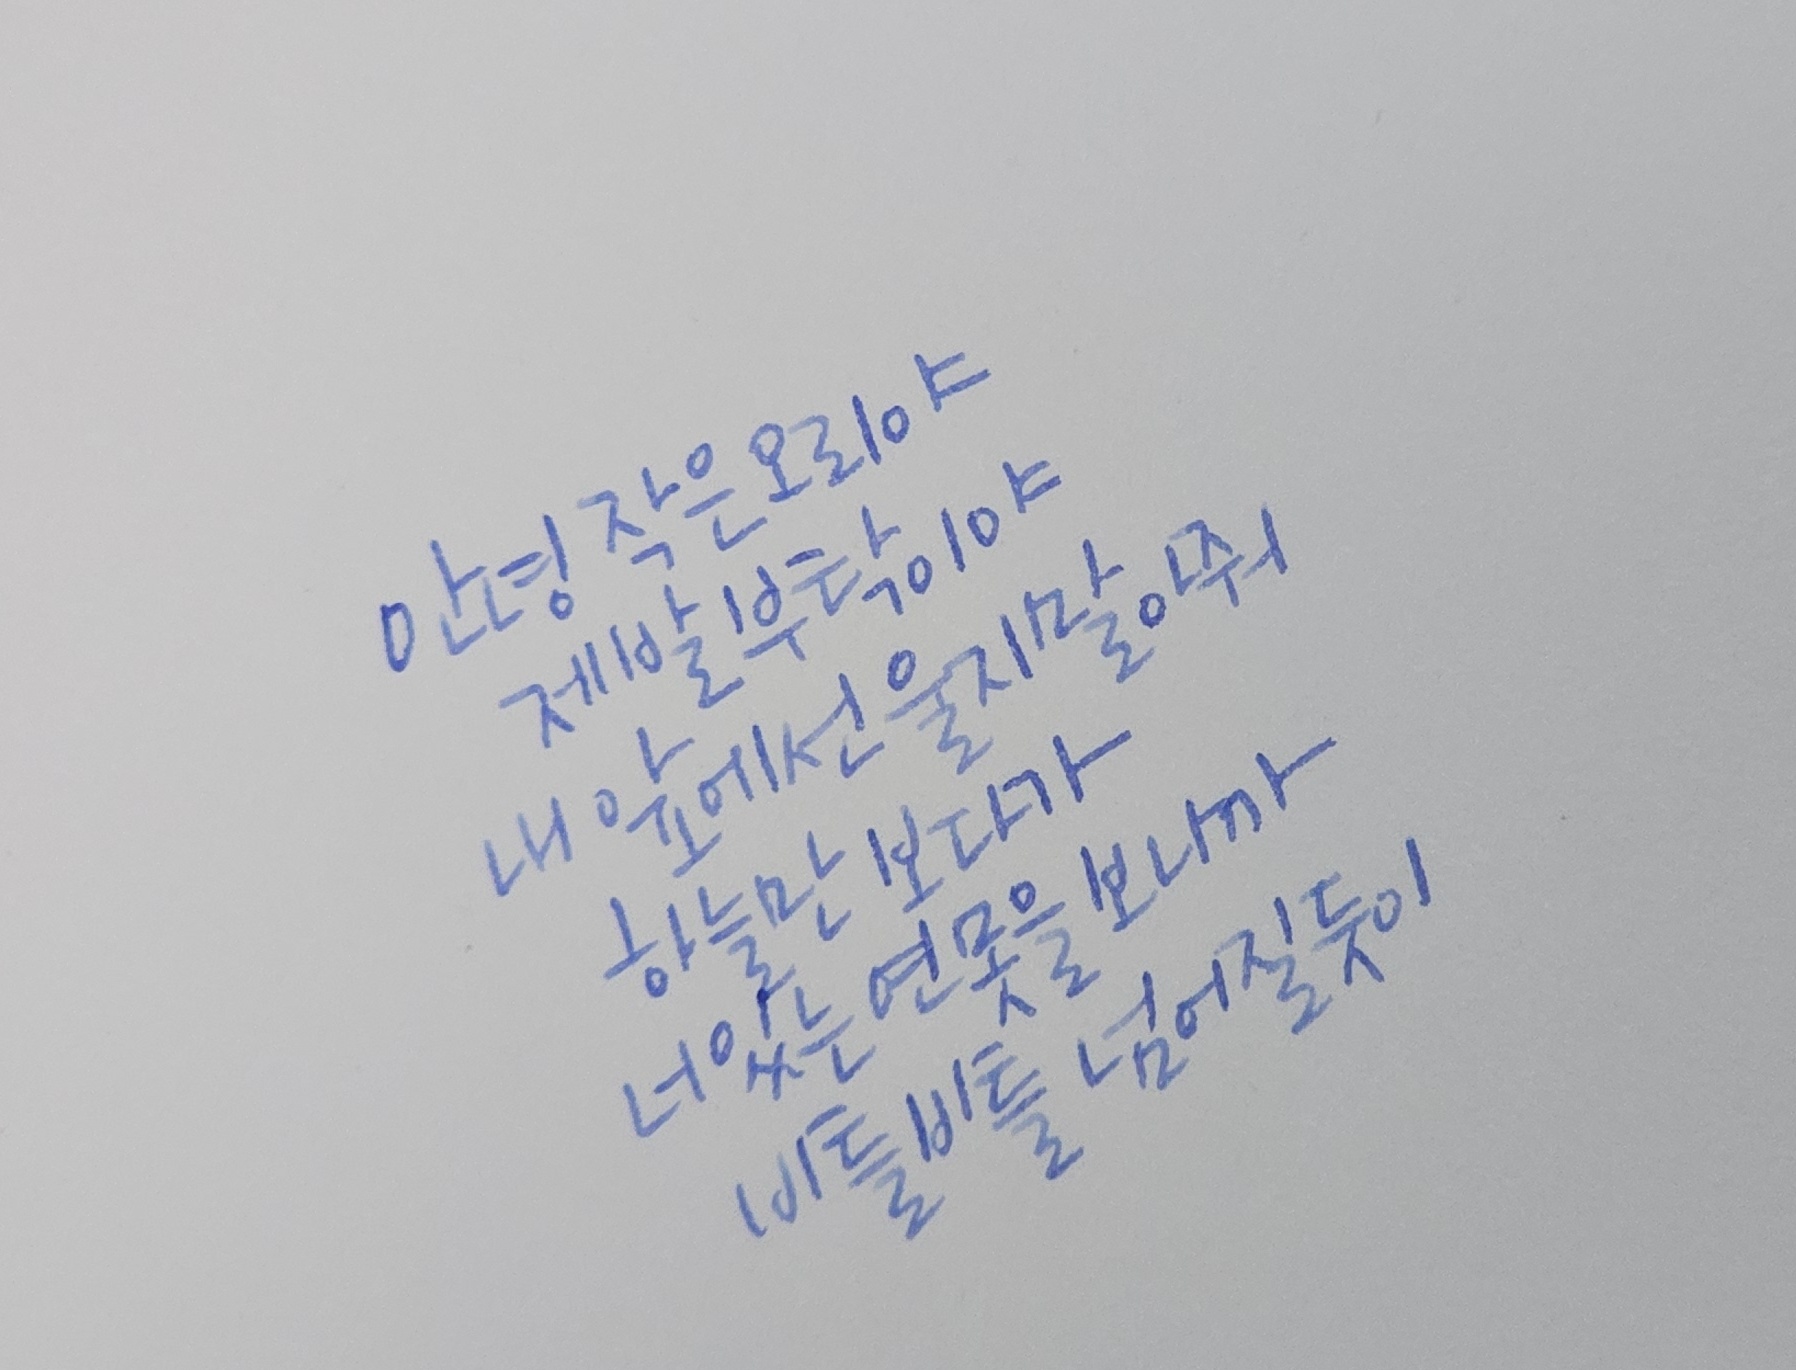 안녕 작은오리야
제발부탁이야
내 앞에선 울지말아줘
하늘만 보다가
너있는 연못을 보니까
비틀비틀 넘어질듯이